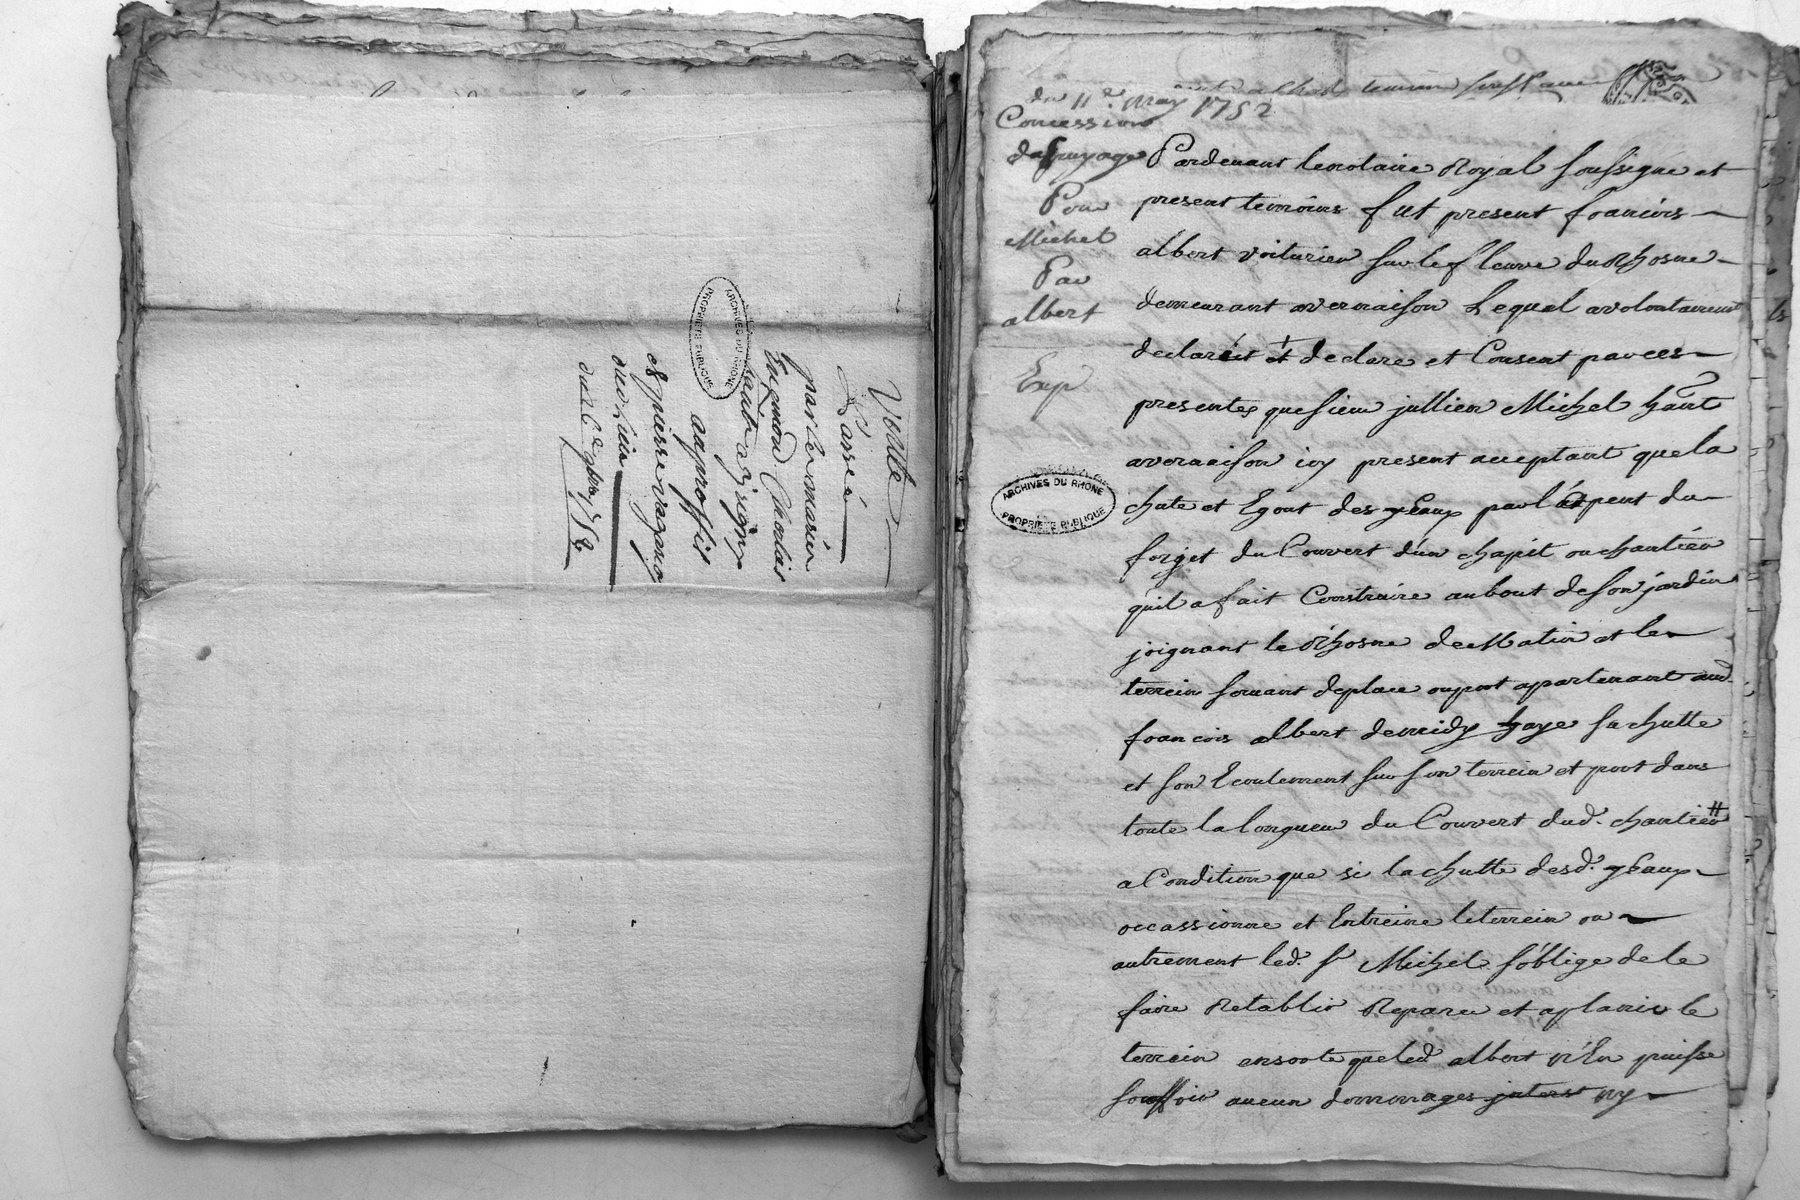 Vente
Passé
par le marin
Enemond Chorlis
ayigny
au proffit
de pierre vagnio
ARCHIVES DU RHONE
PROPRIETE PUBLIQUE
du 11e May 1752
Concession
Pour
Michel
Par
albert
Exp
Pardevant le notaire Royal soussigné et
present temoins fut present francois
albert voiturier sur le fleuve du Rhosne
demeurant a vernaison Lequel a volontairement
declaré et declare et Consent par ces
presentes que sieur jullien Michel hant
a vernaison icy present acceptant que la
chute et Egout des yeaux par l'arpent du
forget du Couvert d'un chapit ou chantier
qu'il a fait Construire au bout de son jardin
joignant le Rhosne de Matin et le
terrein servant de place ou port apartenant aud.
francois albert de midy haye sa chutte
et son Ecoulement sur son terrein et port dans
toute la longueur du Couvert dud. chantier #
a Condition que si la chutte desd. yeaux
occassionne et Entreine le terrein ou
autrement led. sr Michel s'oblige de le
faire Retablir Reparer et aplanir le
terrein ensorte que led albert n'En puisse
souffrir aucun dommages inters ny
ARCHIVES DU RHONE
PROPRIETE PUBLIQUE